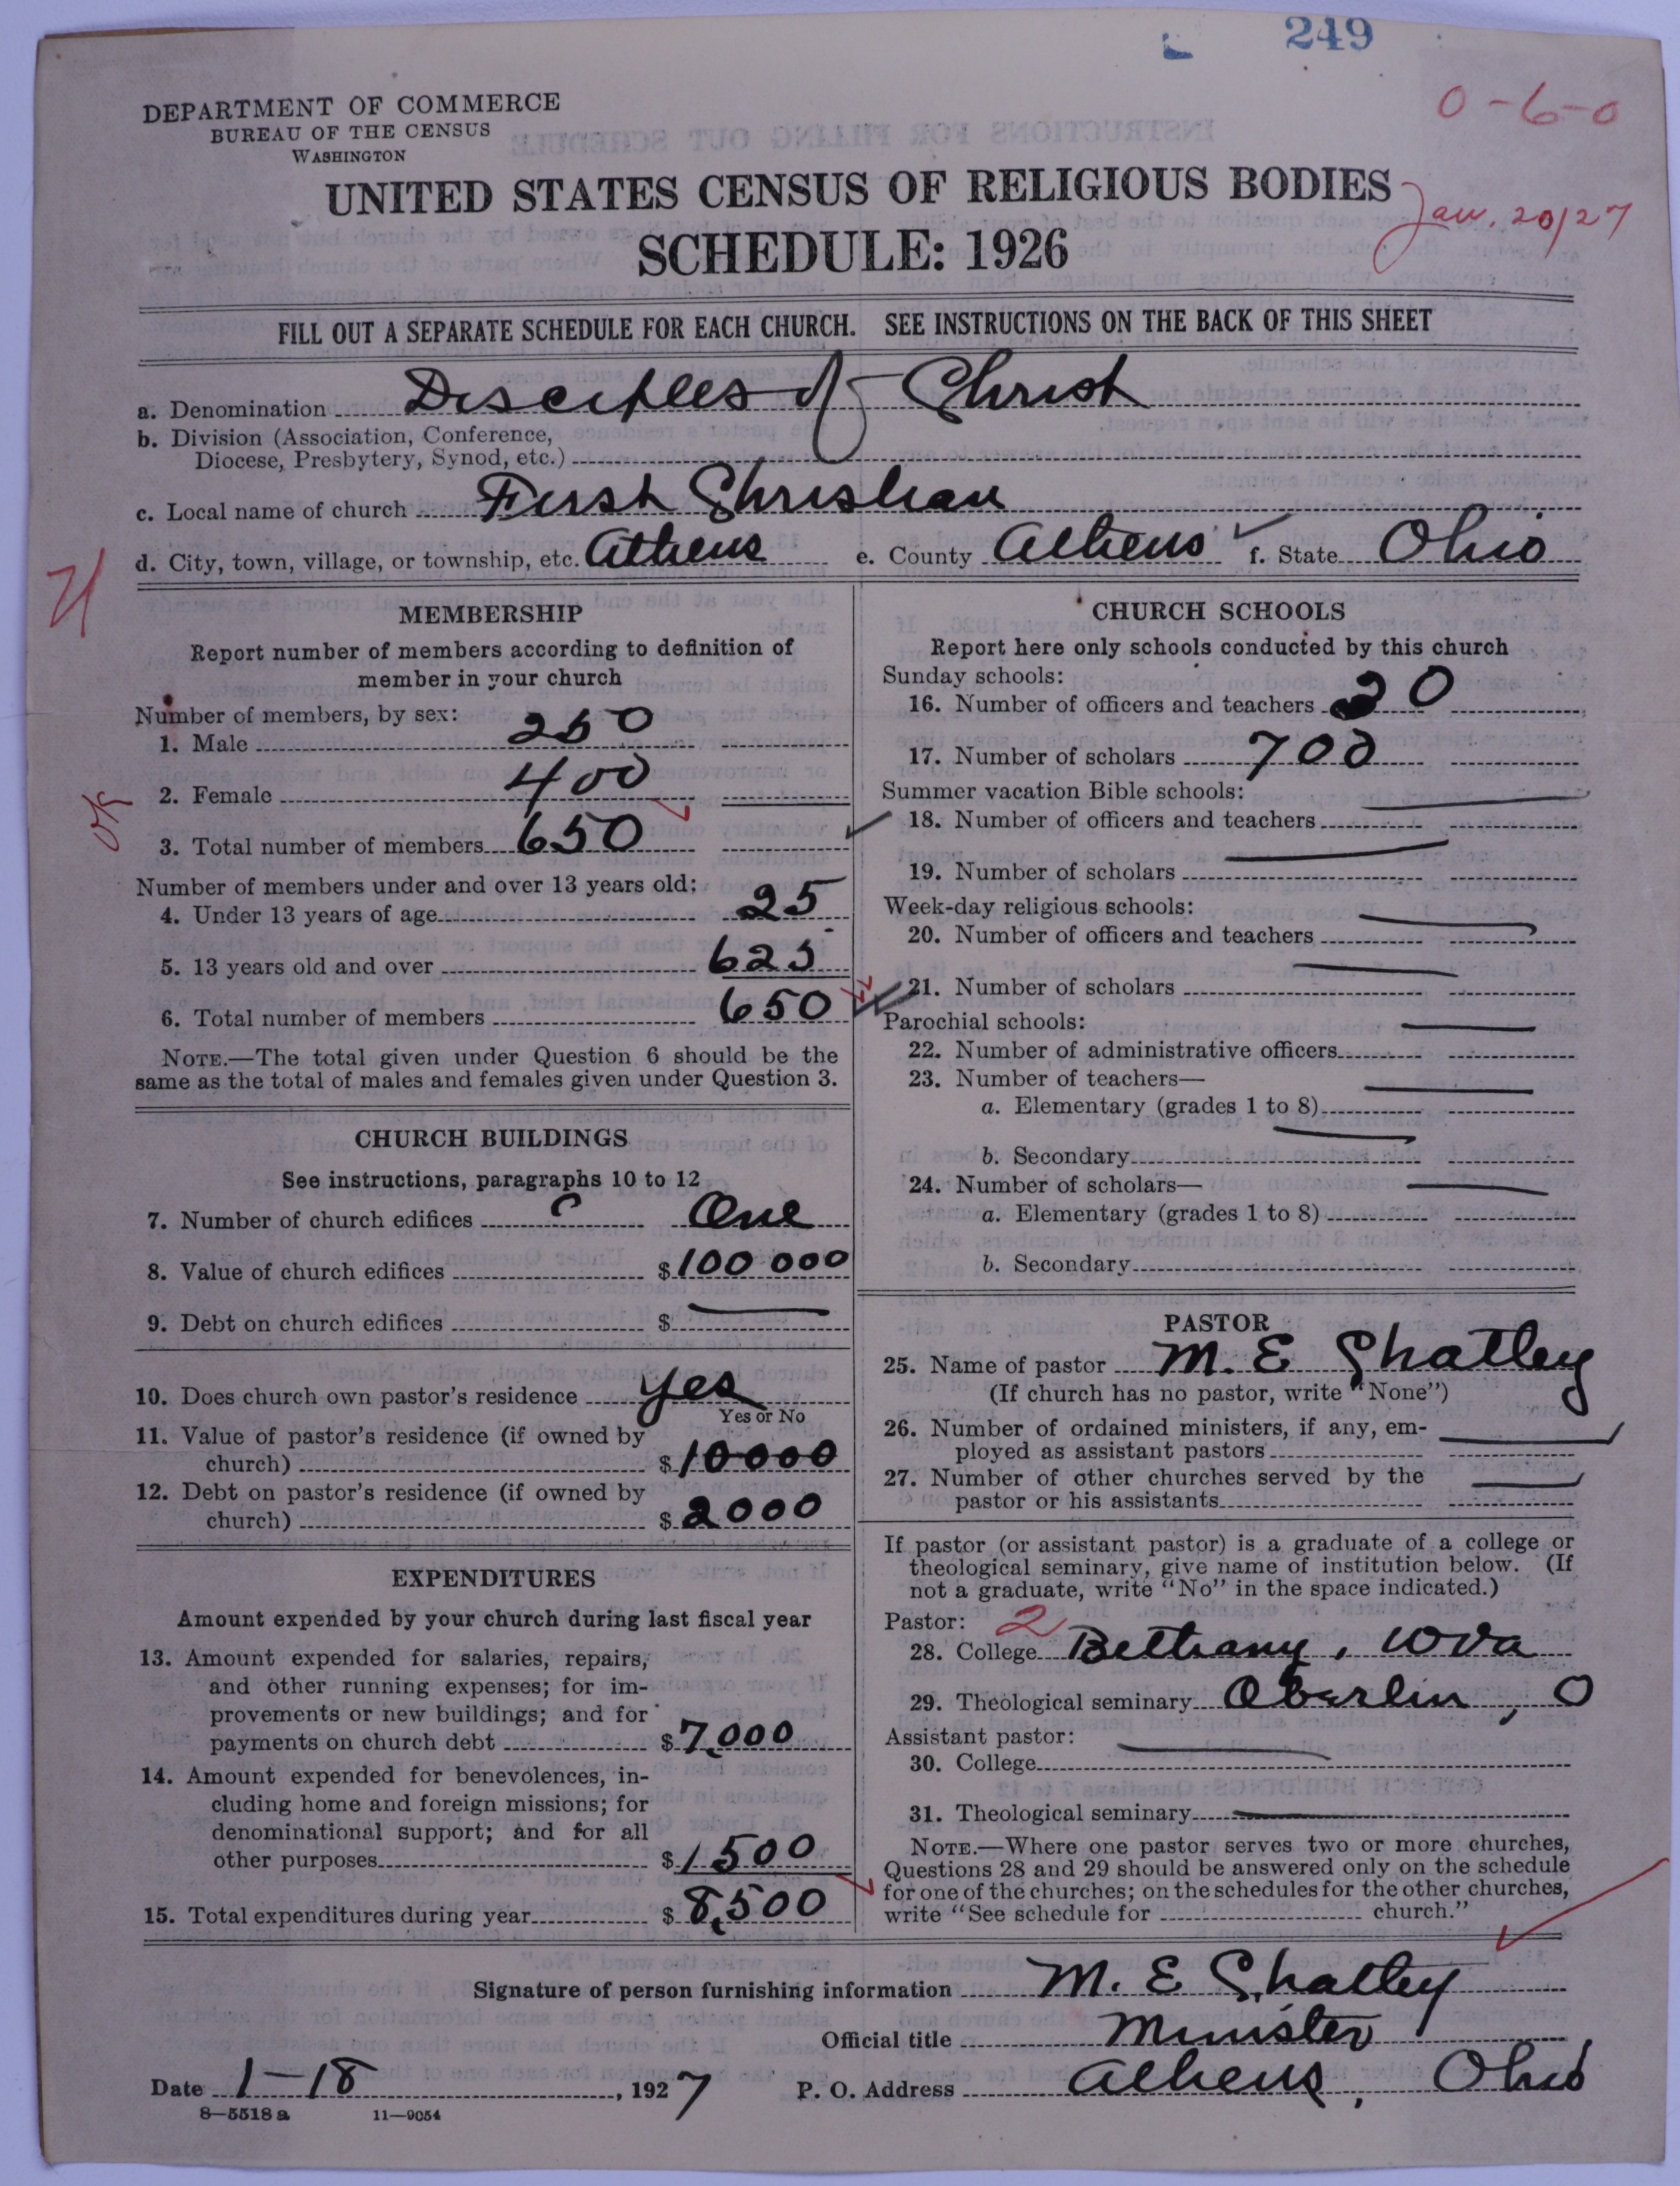 249
0-6-0
DEPARTMENT OF COMMERCE
BUREAU OF THE CENSUS
WASHINGTON
UNITED STATES CENSUS OF RELIGIOUS BODIES
Jan. 20/27
SCHEDULE: 1926
FILL OUT A SEPARATE SCHEDULE FOR EACH CHURCH. SEE INSTRUCTIONS ON THE BACK OF THIS SHEET
a. Denomination Disciples of Christ
b. Division (Association, Conference,
Diocese, Presbytery, Synod, etc.)
c. Local name of church First Christian
d. City, town, village, or township, etc. Athens e. County Athens f. State Ohio
MEMBERSHIP
Report number of members according to definition of
member in your church
Number of members, by sex:
1. Male 250
2. Female 400
OK
3. Total number of members 650
Number of members under and over 13 years old:
4. Under 13 years of age 25
5. 13 years old and over 625
6. Total number of members 650
NOTE.—The total given under Question 6 should be the
same as the total of males and females given under Question 3.
CHURCH BUILDINGS
See instructions, paragraphs 10 to 12
7. Number of church edifices One
8. Value of church edifices $100 000
9. Debt on church edifices $
10. Does church own pastor's residence Yes
Yes or No
11. Value of pastor's residence (if owned by
church) $10000
12. Debt on pastor's residence (if owned by
church) $2000
EXPENDITURES
Amount expended by your church during last fiscal year
13. Amount expended for salaries, repairs,
and other running expenses; for im-
provements or new buildings; and for
payments on church debt $7,000
14. Amount expended for benevolences, in-
cluding home and foreign missions; for
denominational support; and for all
other purposes $1500
15. Total expenditures during year $8,500
CHURCH SCHOOLS
Report here only schools conducted by this church
Sunday schools:
16. Number of officers and teachers 30
17. Number of scholars 700
Summer vacation Bible schools:
18. Number of officers and teachers
19. Number of scholars
Week-day religious schools:
20. Number of officers and teachers
21. Number of scholars
Parochial schools:
22. Number of administrative officers
23. Number of teachers—
a. Elementary (grades 1 to 8)
b. Secondary
24. Number of scholars—
a. Elementary (grades 1 to 8)
b. Secondary
PASTOR
25. Name of pastor M. E. Chatley
(If church has no pastor, write "None")
26. Number of ordained ministers, if any, em-
ployed as assistant pastors
27. Number of other churches served by the
pastor or his assistants
If pastor (or assistant pastor) is a graduate of a college or
theological seminary, give name of institution below. (If
not a graduate, write "No" in the space indicated.)
Pastor: 2
28. College Bethany, W Va
29. Theological seminary Oberlin, O
Assistant pastor:
30. College
31. Theological seminary
NOTE.—Where one pastor serves two or more churches,
Questions 28 and 29 should be answered only on the schedule
for one of the churches; on the schedules for the other churches,
write "See schedule for church."
Signature of person furnishing information M. E. Chatley
Official title Minister
Date 1-18, 1927 P. O. Address Athens, Ohio
8—5518a 11—9054